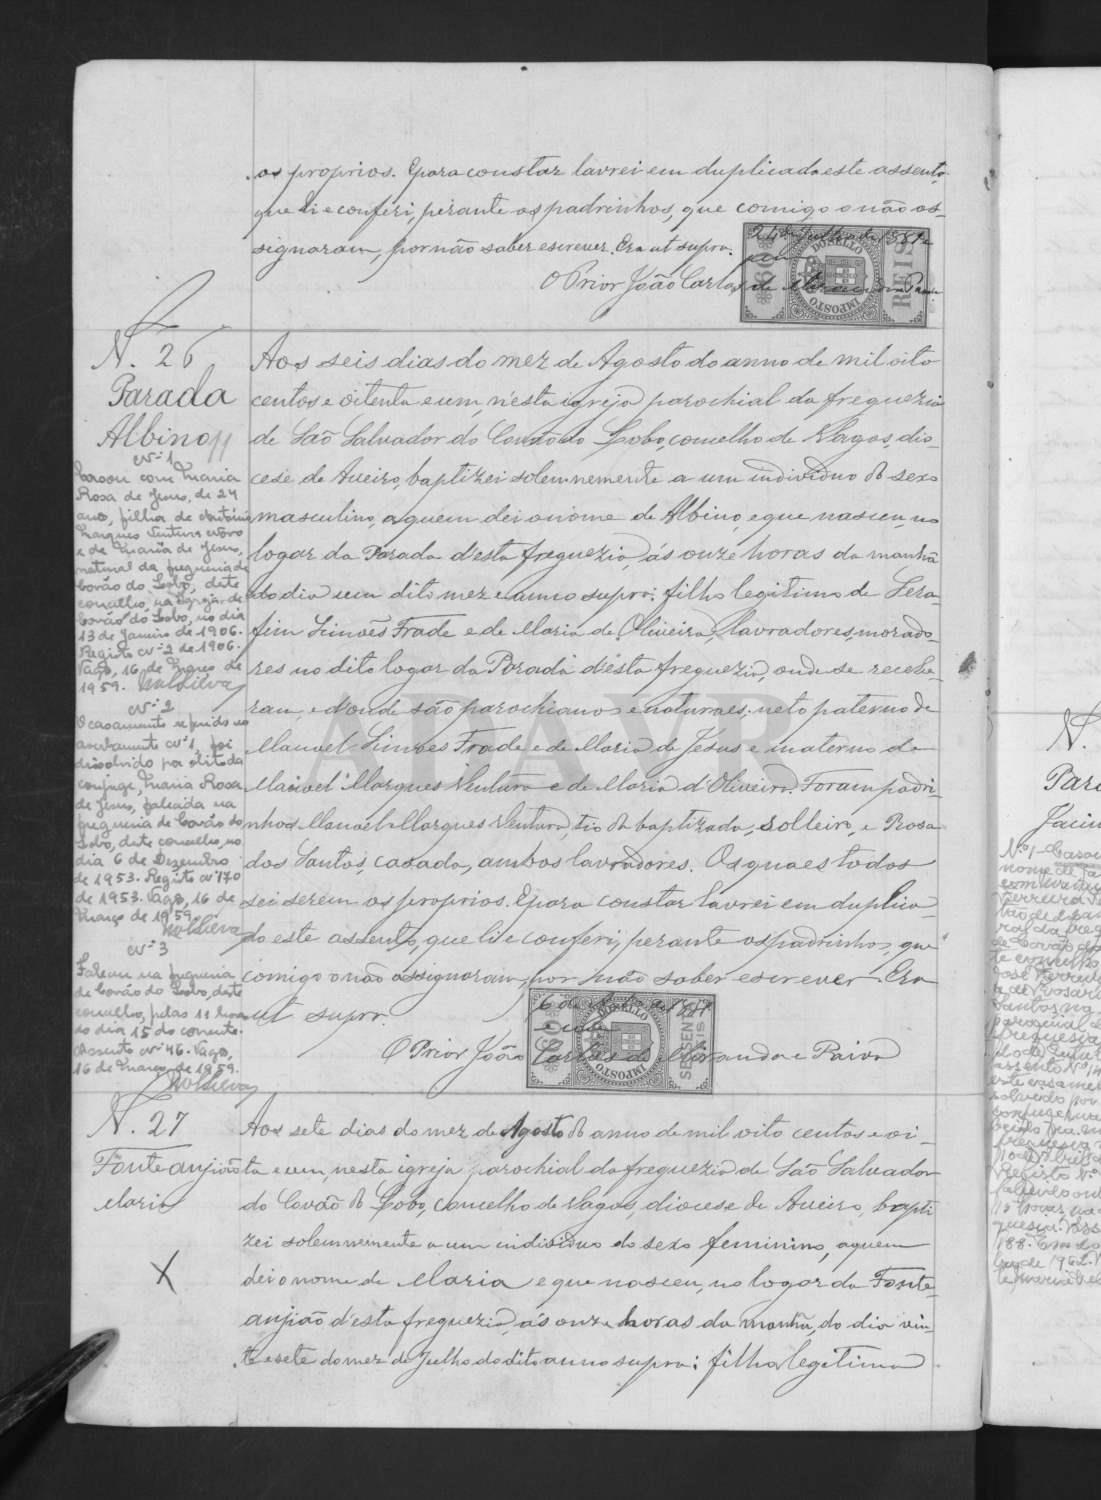 os proprios. E para constar lavrei em duplicado este assento,
que li e conferi, perante os padrinhos, que comigo o não as-
signaram, por não saber escrever. Era ut supra.
O Prior João Carlos de Miranda e Paiva
DO SELLO
IMPOSTO
REIS
N. 26
Parada
Albino
Nº 1
Casou com Maria
Rosa de Jesus, de 24
anos, filha de António
Marques Ventura Novo
e de Maria de Jesus,
natural da freguesia de
Covão do Lobo, deste
concelho, na Igreja de
Covão do Lobo, no dia
13 de Janeiro de 1906.
Registo nº 2 de 1906.
Vagos, 16 de Março de
1959.
Nº 2
O casamento referido no
averbamento nº 1, foi
dissolvido por óbito da
conjuge, Maria Rosa
de Jesus, falecida na
freguesia de Covão do
Lobo, deste concelho, no
dia 6 de Dezembro
de 1953. Registo nº 170
de 1953. Vagos, 16 de
Março de 1959.
Nº 3
Faleceu na freguesia
de Covão do Lobo, deste
concelho, pelas 11 horas
do dia 15 do corrente.
Assento nº 46. Vagos,
16 de Março de 1959.
Aos seis dias do mez de Agosto do anno de mil oito
centos e oitenta e um, n'esta igreja parochial da freguezia
de São Salvador do Covão do Lobo, concelho de Vagos, dio-
cese de Aveiro, baptizei solemnemente a um individuo do sexo
masculino, a quem dei o nome de Albino, e que nasceu, no
logar da Parada d'esta freguezia, ás onze horas da manhã
do dia um dito mez e anno supra: filho legitimo de Sera-
fim Simões Frade e de Maria de Oliveira, lavradores, morado-
res no dito logar da Parada d'esta freguezia, onde se recebe-
ram, e d'onde são parochianos e naturaes: neto paterno de
Manoel Simões Frade e de Maria de Jesus e materno de
Manoel Marques Ventura e de Maria d'Oliveira. Foram padri-
nhos Manoel Marques Ventura, tio do baptizado, solteiro, e Rosa
dos Santos, casada, ambos lavradores. Os quaes todos
sei serem os proprios. E para constar lavrei em duplica-
do este assento, que li e conferi, perante os padrinhos, que
comigo o não assignaram, por não saber escrever. Era
ut supra.
DO SELLO
IMPOSTO
SESSENTA
REIS
O Prior João Carlos de Miranda e Paiva
N. 27
Fonte anjião
Maria
Aos sete dias do mez de Agosto do anno de mil oito centos e oi-
tenta e um, nesta igreja parochial da freguezia de São Salvador
do Covão do Lobo, concelho de Vagos, diocese de Aveiro, bapti
zei solemnemente a um individuo do sexo feminino, a quem
dei o nome de Maria e que nasceu, no logar da Fonte-
anjião d'esta freguezia, ás onze horas da manhã, do dia vin-
te e sete do mez de Julho do dito anno supra: filha legitima
APAVR